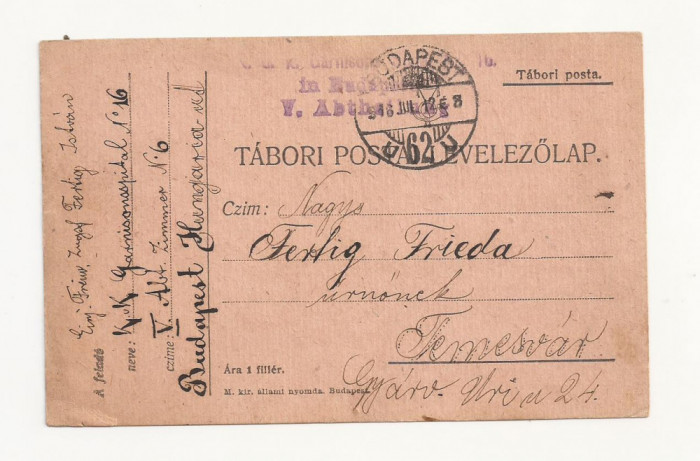 K. u. K. Garnisons No. 16.
in Budapest
V. Abtheilung
BUDAPEST
916 JUL. 12
62
Tábori posta.
TÁBORI POSTAI LEVELEZŐLAP.
Czim: Nagys
Fertig Frieda
úrnőnek
Temesvár
Gyárv. Uri u 24.
Ára 1 fillér.
M. kir. állami nyomda. Budapest.
A feladó
Einj. Freiw. Zugsf Fertig István
neve: K. u K Garnisonsspital No 16
czime: V. Abt. Zimmer No. 6
Budapest Hungária út